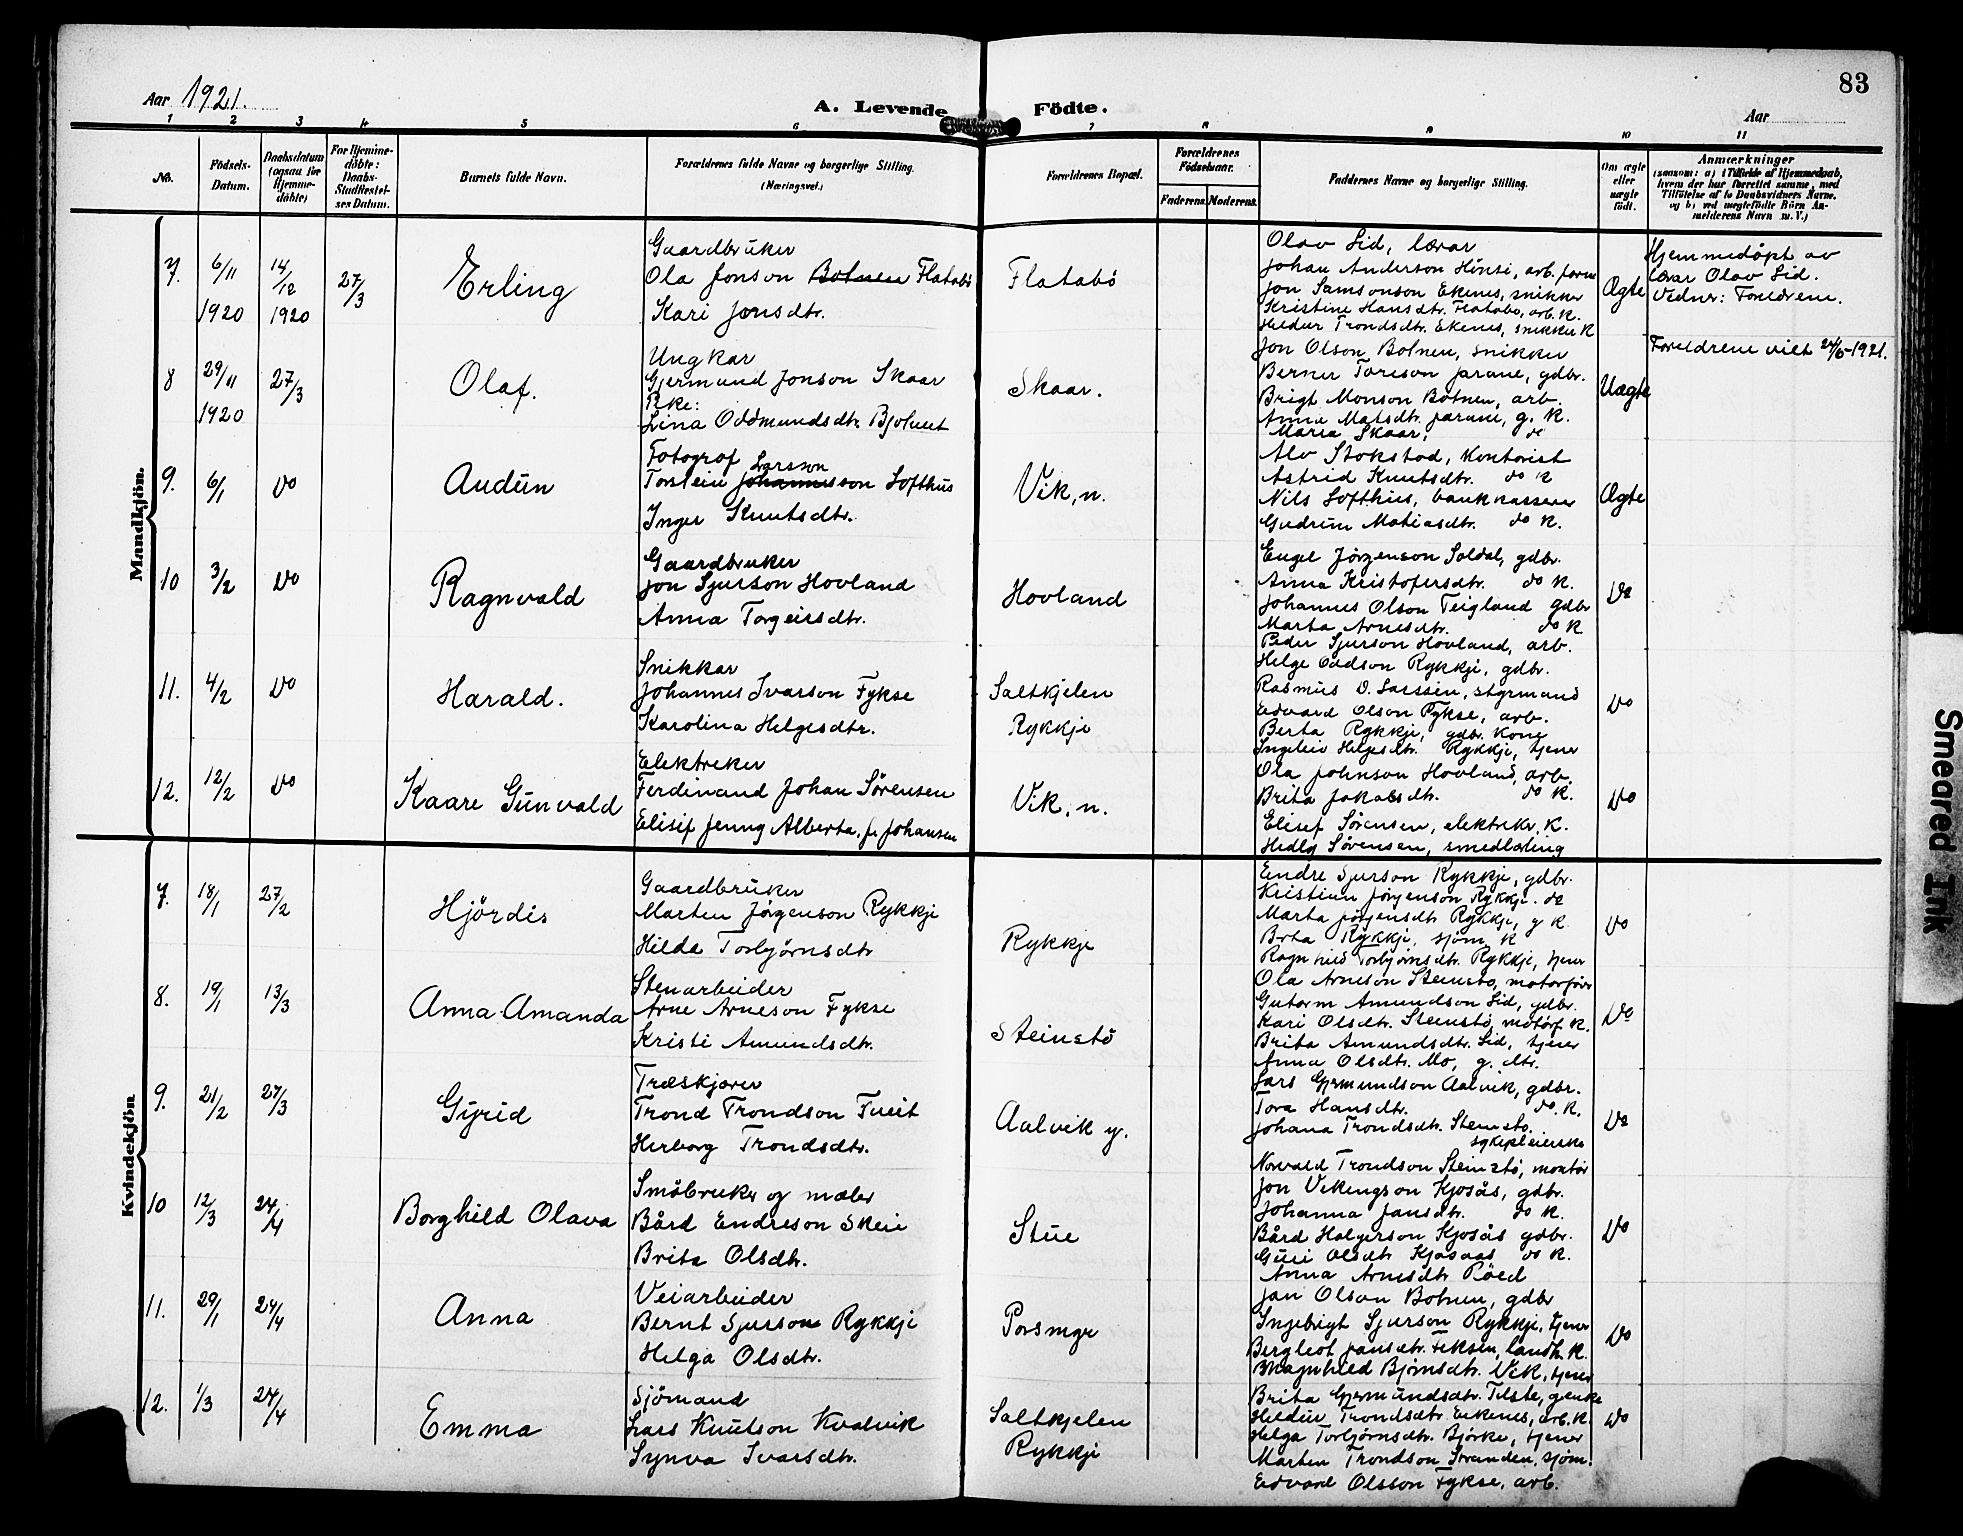 83
Aar 1921.
A. Levende Födte.
Aar
1 2 3 4 5 6 7 8 9 10 11
No.
Födsels-Datum.
Daabsdatum (ogsaa for Hjemme-döbte)
For Hjemme-döbte: Daabs-Stadfæstel-ses Datum.
Barnets fulde Navn.
Forældrenes fulde Navne og borgerlige Stilling. (Næringsvei.)
Forældrenes Bopæl.
Forældrenes Födselsaar.
Faderens Moderens.
Faddernes Navne og borgerlige Stilling.
Om ægte eller uægte födt.
Anmærkninger
(saasom: a) i Tilfælde af Hjemmedaab, hvem der har forrettet samme, med Tilföielse af to Daabsvidners Navne, og b) ved uægtefödte Börn An-melderens Navn m. V.)
Mandkjön.
7. 6/11 1920 14/12 1920 27/3
Erling
Gaardbruker
Ola Jonson Botnen Flatabö
Kari Jonsdtr.
Flatabö
Olav Lid, lærar
Johan Anderson Hönsi, arb. form
Jon Samsonson Ekenes, snikker
Kristine Hansdtr. Flatabö, arb. K.
Heldur Trondsdtr. Ekenes, snikker K
Ægte
Hjemmedöpt av
lærar Olav Lid.
Vidner: Foreldrene.
8 29/11 1920 27/3
Olaf.
Ungkar
Gjermund Jonson Skaar
Pike:
Lina Oddmundsdtr. Bjotveit
Skaar.
Jon Olson Botnen, snikker
Berner Toreson Jarane, gdbr.
Brigt Monson Botnen, arb.
Anna Matsdtr. Jarane, g. K.
Maria Skaar, do
Uægte
Foreldrene viet 24/5-1921.
9. 6/1 Do
Audün
Fotograf
Larsson
Torstein Johannesson Lofthus
Inger Knutsdtr.
Vik, n.
Alv Stokstad, Kontorist
Astrid Knutsdtr. do K
Nils Lofthus, bankkasserer
Gudrün Matiasdtr. do K.
Ægte
10 3/2 Do
Ragnvald
Gaardbruker
Jon Sjurson Hovland
Anna Torgeirsdtr.
Hovland
Engel Jørgenson Soldal, gdbr.
Anna Kristofersdtr. do K.
Johannes Olson Teigland gdbr
Marta Arnesdtr. do K
Peder Sjurson Hovland, arb.
Do
11. 4/2 Do
Harald.
Snikkar
Johannes Ivarson Fykse
Karolina Helgesdtr.
Saltkjelen
Rykkje
Helge Oddson Rykkje, gdbr.
Rasmus O. Larssen, styrmand
Edvard Olson Fykse, arb.
Berta Rykkje, gdbr. Kone
Ingleiv Helgesdtr. Rykkje, tjener
Do
12. 12/2 Do
Kaare Gunvald
Elektreker
Ferdinand Johan Sørensen
Elisif Jenny Alberta, f. Johansen
Vik, n.
Ola Johnson Hovland, arb.
Brita Jakobsdtr. do K.
Elisef Sørensen, elektrekr. K.
Hedly Sørensen, smedlærling
Do
Kvindekjön
7. 18/1 27/2
Hjördis
Gaardbrüker
Marten Jørgenson Rykkje
Hilde Torbjørnsdtr
Rykkje
Endre Sjurson Rykkje, gdbr.
Kristian Jørgenson Rykkje. do
Marta Jørgensdtr Rykkje, g K.
Brta Rykkje, sjöm. K
Ragnhild Torbjörnsdtr. Rykkje, tjener
Do
8. 19/1 13/3
Anna Amanda
Stenarbeider
Arne Arneson Fykse
Kristi Amundsdtr.
Steinstö
Ola Arneson Steinstö, motorförer
Gutorm Amundson Lid, gdbr.
Kari Olsdtr. Steinstö, motorf. K.
Brita Amundsdtr. Lid, tjener
Anna Olsdtr. Mo, g. dtr.
Do
9. 21/2 27/3
Gyrid
Træskjærer
Trond Trondson Tveit
Herborg Trondsdtr.
Aalvik y.
Lars Gjermundson Aalvik, gdbr.
Tora Hansdtr. do. K.
Johana Trondsdtr. Steinstö.
sykepleierske
Norvald Trondson Steinstö, montör
Do
10 12/3 24/4
Borghild Olava
Småbruker og maler
Bård Endreson Skeie
Brita Olsdtr.
Stue
Jon Vikingson Kjosås, gdbr.
Johanna Jansdtr. do K.
Bård Halgerson Kjosås gdbr.
Guri Olsdtr Kjosaas do K.
Anna Arnesdtr Röed
Do
11. 29/1 24/4
Anna
Veiarbeider
Bernt Sjurson Rykkje
Helga Olsdtr.
Porsmyr
Jon Olson Botnen, gdbr
Ingebrigt Sjurson Rykkje, tjener
Bergliot Jansdtr. Feksen, landh. K.
Magnhild Björnsdtr. Vik, tjener
Do
12. 1/3 24/4
Emma
Sjömand
Lars Knutson Kvalvik
Synva Ivarsdtr.
Saltkjelen
Rykkje
Brita Gjermundsdtr. Tilste, genke
Heldur Trondsdtr. Eikenes, arb. K.
Helga Torbjørnsdtr. Bjørke, tjener
Marten Trondson Stranden, sjöm.
Edvard Olsson Fykse, arb.
Do
Smeared Ink